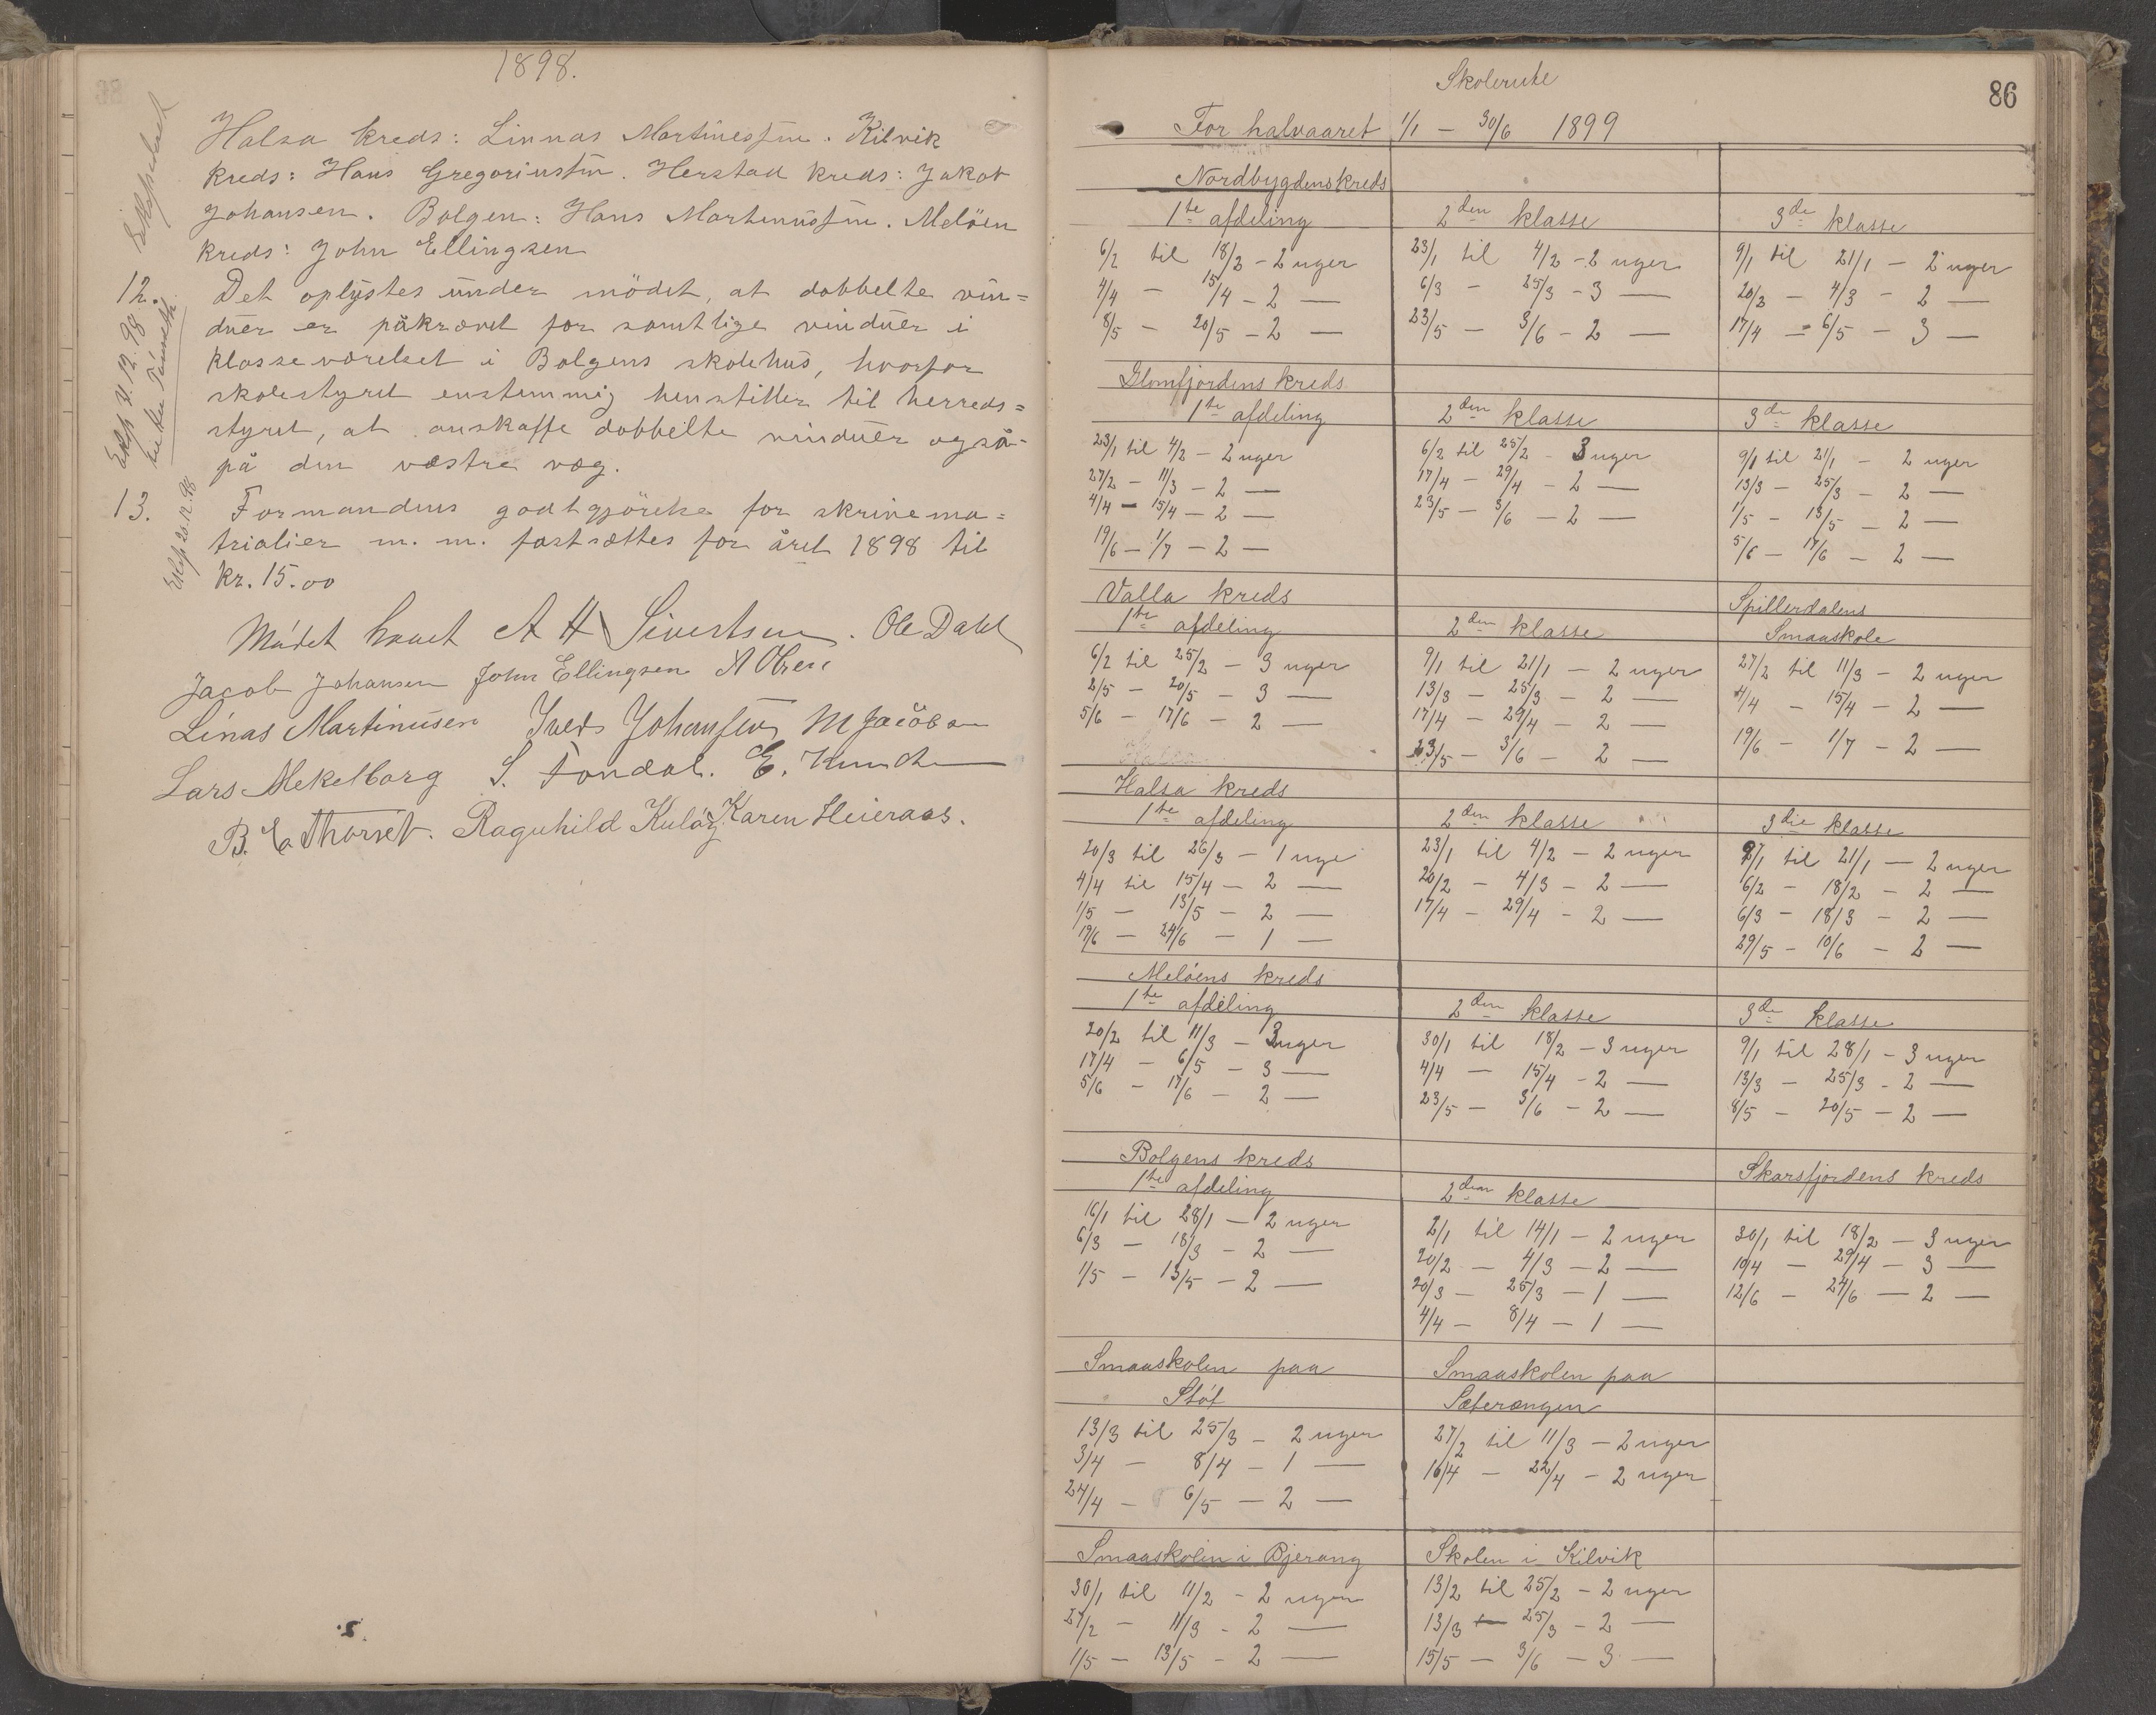 1898.
Halsa kreds: Linnas Martinessen. Kilvik
kreds: Hans Gregoriussen. Herstad kreds: Jakob
Johansen. Bolgen: Hans Martinussen. Melöen
kreds: John Ellingsen
12. Det oplystes under mödet, at dobbelte vin=
duer er påkrævet for samtlige vinduer i
klasseværelset i Bolgens skolehus, hvorfor
skolestyret enstemmig henstiller til herreds=
styret, at anskaffe dobbelte vinduer også
på den væstre væg.
13. Formandens godtgjörelse for skrivema=
trialier m. m. fastsættes for året 1898 til
kr. 15.00
Mödet hævet A H Sivertsen. Ole Dahl
Jacob Johansen John Ellingsen A Olsen
Linas Martinusen Iver Johansen M Jacobsen
Lars Mekelborg S. Fondal. E. Munch
B. Ea Thorset. Ragnhild Kulöy Karen Heieraas.
Eksp 21.12.98
Eksp 20.12.98
86
Skolerute
For halvaaret 1/1 – 30/6 1899
Nordbygdens kreds
1te afdeling 2den klasse 3de klasse
6/2 til 18/2 – 2 uger 23/1 til 4/2 – 2 uger 9/1 til 21/1 – 2 uger
4/4 – 15/4 – 2 — 6/3 – 25/3 – 3 — 20/2 – 4/3 – 2 —
8/5 – 20/5 – 2 — 23/5 – 3/6 – 2 — 17/4 – 6/5 – 3 —
Glomfjordens kreds
1te afdeling 2den klasse 3de klasse
23/1 til 4/2 – 2 uger 6/2 til 25/2 – 3 uger 9/1 til 21/1 – 2 uger
27/2 – 11/3 – 2 — 17/4 – 29/4 – 2 — 13/3 – 25/3 – 2 —
4/4 – 15/4 – 2 — 23/5 – 3/6 – 2 — 1/5 – 13/5 – 2 —
19/6 – 1/7 – 2 — 5/6 – 17/6 – 2 —
Valla kreds Spillerdalens
1te afdeling 2den klasse Smaaskole
6/2 til 25/2 – 3 uger 9/1 til 21/1 – 2 uger 27/2 til 11/3 – 2 uger
2/5 – 20/5 – 3 — 13/3 – 25/3 – 2 — 4/4 – 15/4 – 2 —
5/6 – 17/6 – 2 — 17/4 – 29/4 – 2 — 19/6 – 1/7 – 2 —
23/5 – 3/6 – 2 —
Halsa kreds
1te afdeling 2den klasse 3die klasse
20/3 til 26/3 – 1 uge 23/1 til 4/2 – 2 uger 9/1 til 21/1 – 2 uger
4/4 til 15/4 – 2 — 20/2 – 4/3 – 2 — 6/2 – 18/2 – 2 —
1/5 – 13/5 – 2 — 17/4 – 29/4 – 2 — 6/3 – 18/3 – 2 —
19/6 – 24/6 – 1 — 29/5 – 10/6 – 2 —
Melöens kreds
1te afdeling 2den klasse 3de klasse
20/2 til 11/3 – 3 uger 30/1 til 18/2 – 3 uger 9/1 til 28/1 – 3 uger
17/4 – 6/5 – 3 — 4/4 – 15/4 – 2 — 13/3 – 25/3 – 2 —
5/6 – 17/6 – 2 — 23/5 – 3/6 – 2 — 8/5 – 20/5 – 2 —
Bolgens kreds Skarsfjordens kreds
1te afdeling 2den klasse
16/1 til 28/1 – 2 uger 2/1 til 14/1 – 2 uger 30/1 til 18/2 – 3 uger
6/3 – 18/3 – 2 — 20/2 – 4/3 – 2 — 10/4 – 29/4 – 3 —
1/5 – 13/5 – 2 — 20/3 – 25/3 – 1 — 12/6 – 24/6 – 2 —
4/4 – 8/4 – 1 —
Smaaskolen paa Smaaskolen paa
Stöt Sæterængen
13/3 til 25/3 – 2 uger 27/2 til 11/3 – 2 uger
3/4 – 8/4 – 1 — 10/4 – 22/4 – 2 uger
24/4 – 6/5 – 2 —
Smaaskolen i Bjerang Skolen i Kilvik
30/1 til 11/2 – 2 uger 13/2 til 25/2 – 2 uger
27/2 – 11/3 – 2 — 13/3 – 25/3 – 2 —
1/5 – 13/5 – 2 — 15/5 – 3/6 – 3 —